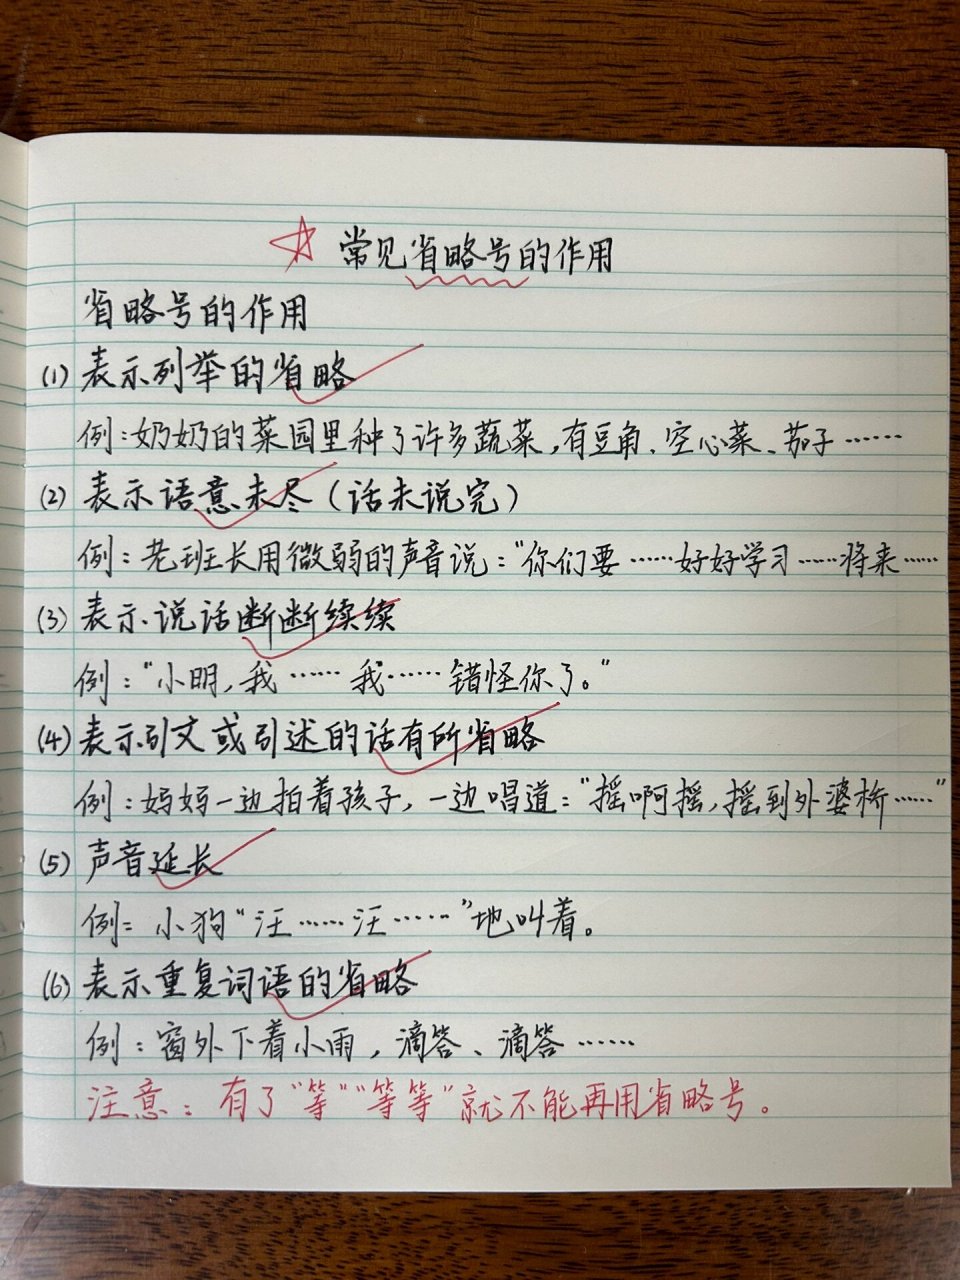 常见省略号的作用
省略号的作用
(1) 表示列举的省略
例:奶奶的菜园里种了许多蔬菜,有豆角、空心菜、茄子……
(2) 表示语意未尽(话未说完)
例:老班长用微弱的声音说:"你们要……好好学习……将来……
(3) 表示说话断断续续
例:"小明,我……我……错怪你了。"
(4) 表示引文或引述的话有所省略
例:妈妈一边拍着孩子,一边唱道:"摇啊摇,摇到外婆桥……"
(5) 声音延长
例:小狗"汪……汪……"地叫着。
(6) 表示重复词语的省略
例:窗外下着小雨,滴答、滴答……
注意:有了"等""等等"就不能再用省略号。